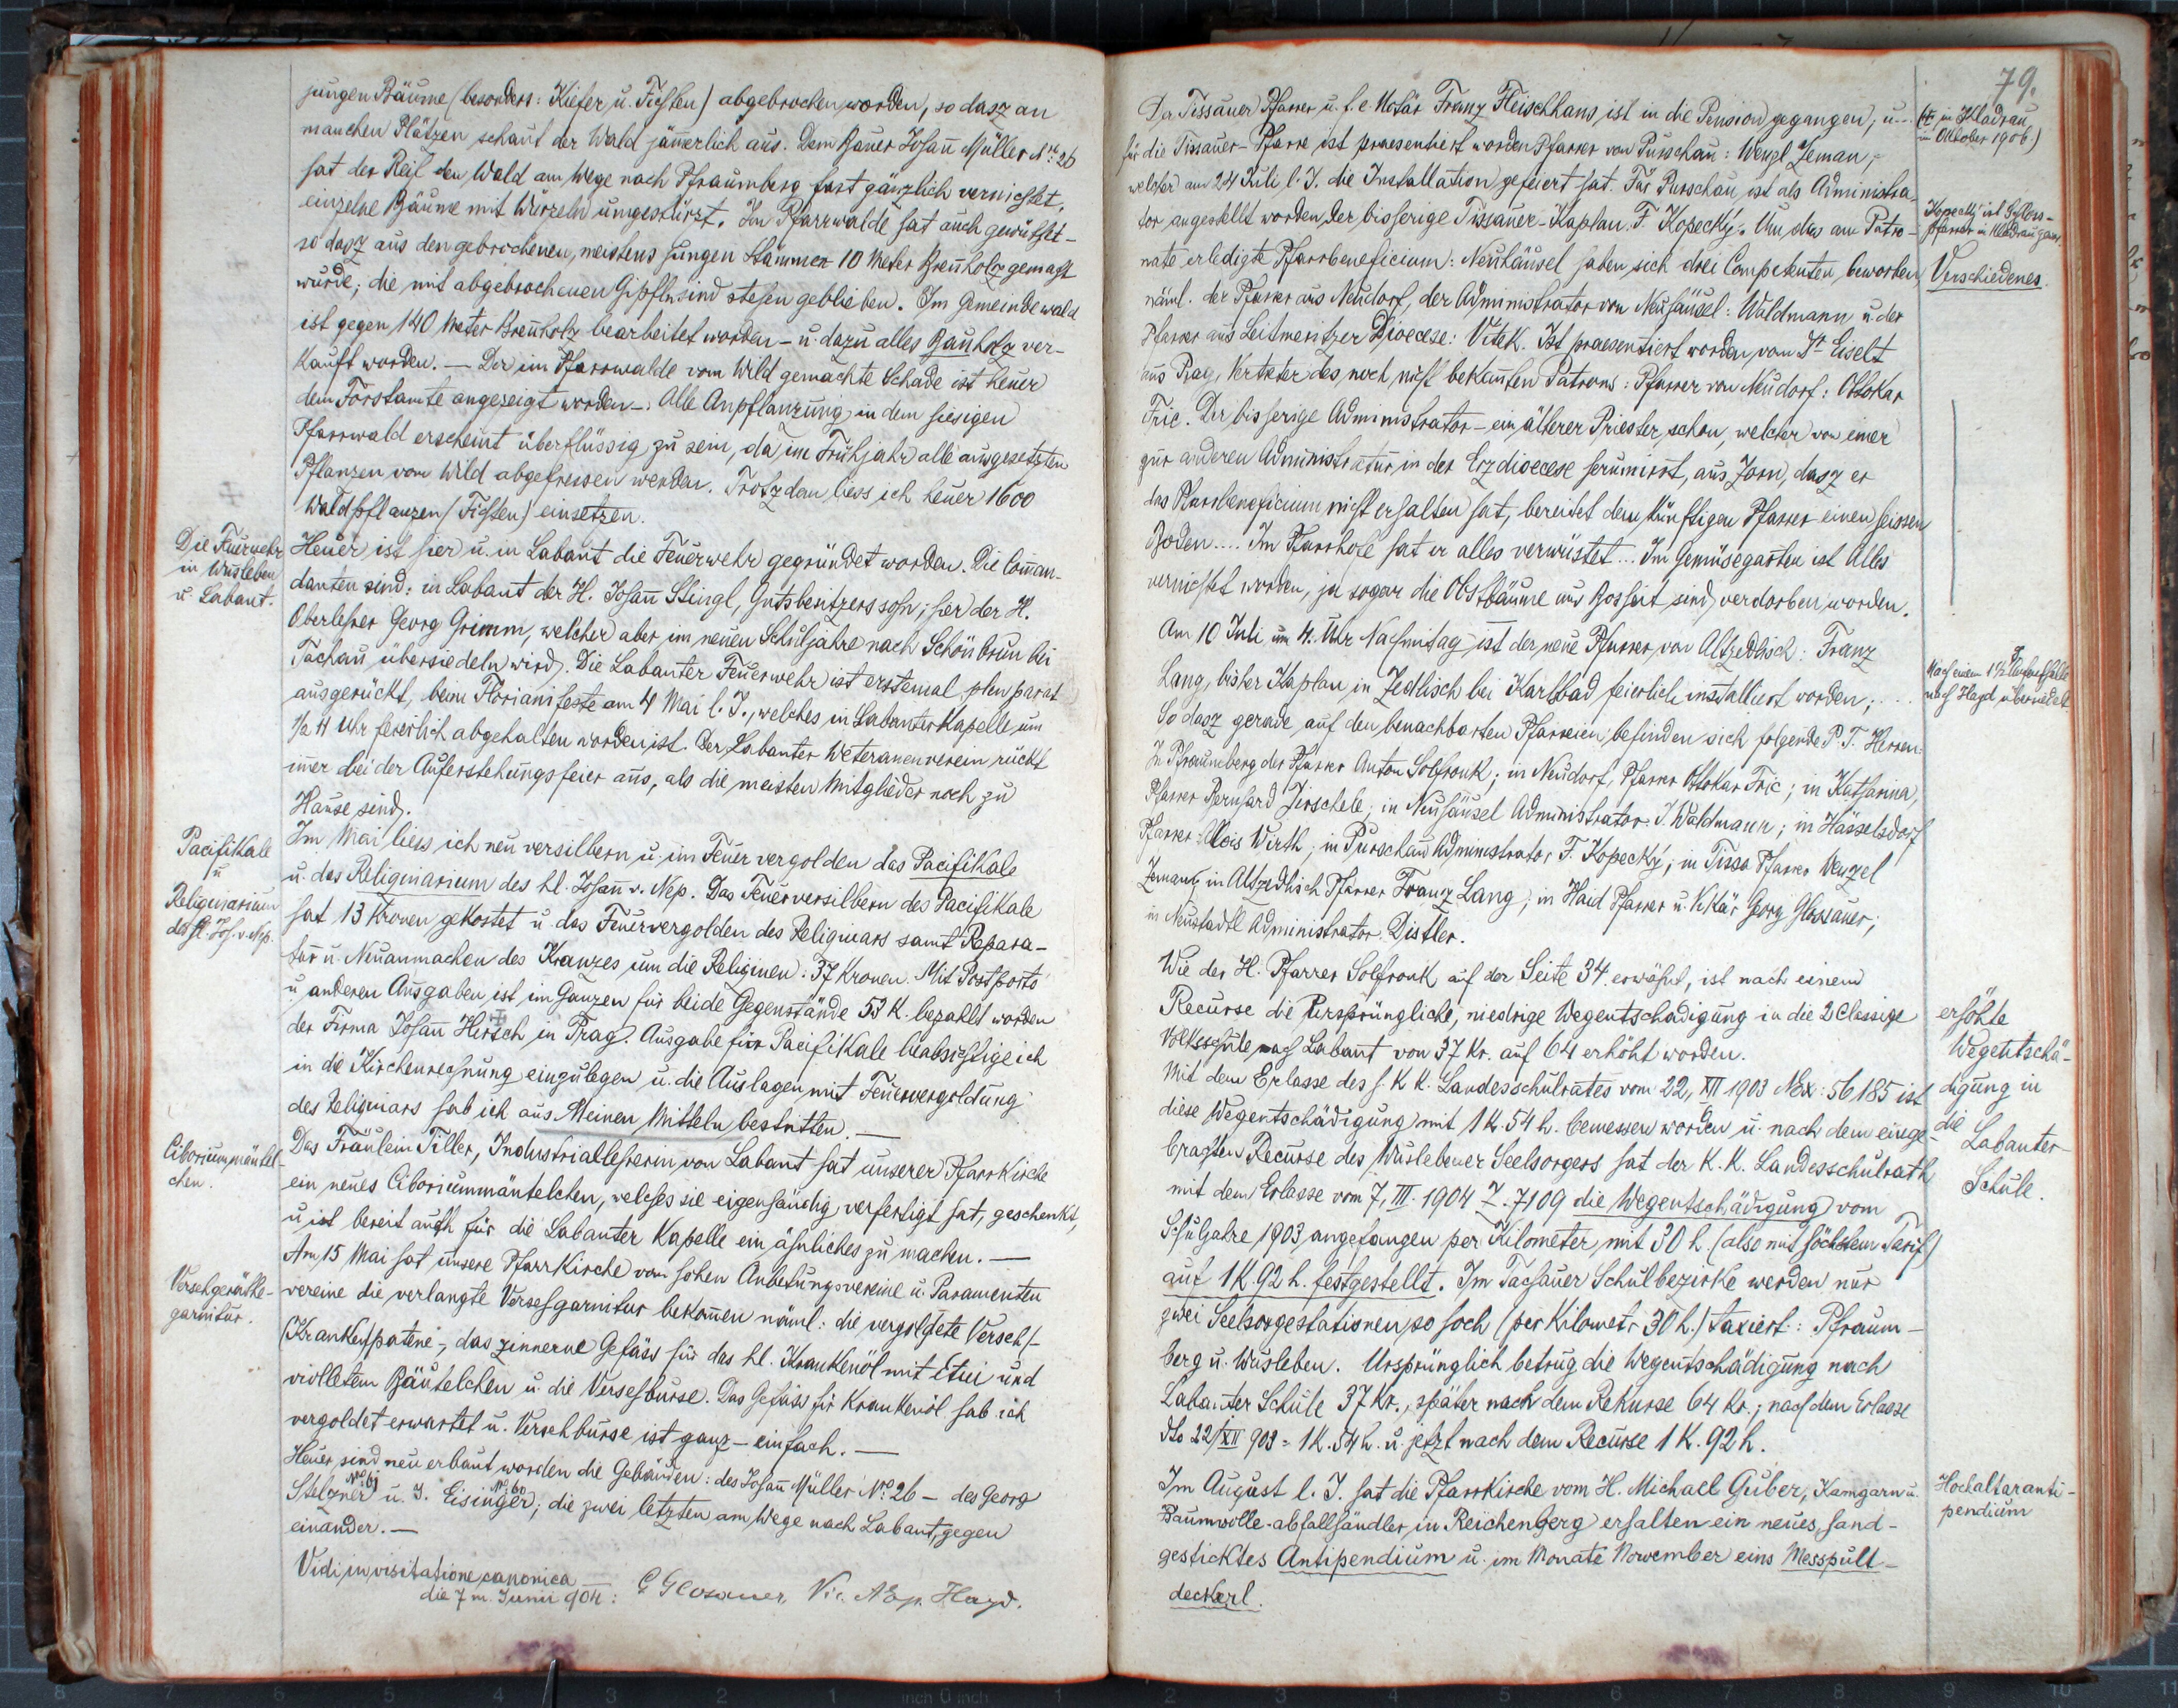 jungen Bäume (besonders: Kiefer u. Fichten) abgebrochen worden, so dasz an
manchen Plätzen schaut der Wald jämerlich aus. Dem Bauer Johañ Müller Nr: 26
hat der Reif den Wald am Wege nach Pfraumberg fast gänzlich vernichtet,
einzelne Bäume mit Wurzeln umgestürzt. Im Pfarrwalde hat auch gewüthet –
so dasz aus den gebrochenen, meistens jungen Stämmen 10 Meter Breñholz gemacht
wurde; die mit abgebrochenen Gipfln sind stehen geblieben. Im Gemeindewald
ist gegen 140 Meter Breñholz bearbeitet worden – u. dazu alles Bauholz ver-
kauft worden. — Der im Pfarrwalde vom Wild gemachte Schade ist heuer
dem Forstamte angezeigt worden –. Alle Anpflanzung in dem hiesigen
Pfarrwald erscheint überflüssig zu sein, da im Frühjahr alle ausgesetzten
Pflanzen vom Wild abgefressen werden. Trotzdem liess ich heuer 1600
Waldpflanzen (Fichten) einsetzen.
Die Feuerwehr
in Wusleben
u. Labant.
Heuer ist hier u. in Labant die Feuerwehr gegründet worden. Die Com̄an-
danten sind: in Labant der H. Johañ Stingl, Gutsbesitzerssohn; hier der H.
Oberlehrer Georg Grimm, welcher aber im neuen Schuljahre nach Schönbrun bei
Tachau übersiedeln wird. Die Labanter Feuerwehr ist erstemal plen parat
ausgerückt, beim Florianifeste am 4 Mai l. J., welches in Labanter Kapelle um
1/2 4 Uhr feierlich abgehalten worden ist. Der Labanter Weteranenverein rückt
im̄er bei der Auferstehungsfeier aus, als die meisten Mitglieder noch zu
Hause sind.
Pacifikale
u
Reliquiarium
des hl. Joh. v. Nep.
Im Mai liess ich neu versilbern u. im Feuer vergolden das Pacifikale
u. das Reliquiarium des hl. Johañ v. Nep. Das Feuerversilbern des Pacifikale
hat 13 Kronen gekostet u. das Feuervergolden des Reliquiars samt Repara-
tur u. Neuanmachen des Kranzes um die Reliquien: 37 Kronen. Mit Postporto
u. anderen Ausgaben ist im Ganzen für beide Gegenstände 53 K. bezahlt worden
der Firma Johañ Hirsch in Prag. Ausgabe für Pacifikale beabsichtige ich
in die Kirchenrechnung einzulegen u. die Auslagen mit Feuervergoldung
des Reliquiars hab ich aus Meinen Mitteln bestritten. —
Ciboriummäntel-
chen.
Das Fräulein Tiller, Industriallehrerin von Labant hat unserer Pfarrkirche
ein neues Ciboriummäntelchen, welches sie eigenhändig verfertigt hat, geschenkt,
u. ist bereit auch für die Labanter Kapelle ein ähnliches zu machen. —
Versehgeräthe-
garnitur.
Am 15 Mai hat unsere Pfarrkirche vom hohen Anbetungsvereine u. Paramenten
vereine die verlangte Versehgarnitur bekom̄en näml: die vergoldete Verseh/-
(Kranken)patene –, das zinnerne Gefäss für das hl. Krankenöl mit Etui und
violletem Bäutelchen u. die Versehburse. Das Gefäss für Krankenöl hab ich
vergoldet erwartet u. Versehburse ist ganz – einfach. —
Heuer sind neu erbaut worden die Gebäuden: des Johañ Müller Nro 26 – des Georg
Stelzner Nro 61 u. J. Eisinger Nro 60; die zwei letzten am Wege nach Labant, gegen
einander. —
Vidi in visitatione canonica
die 7 m. Junii 904: G Glosauer, Vic. AEp. Hayd.
79.
Der Tissauer Pfarrer u. f. e. Notär Franz Fleischhans, ist in die Pension gegangen; u...
(✝ in Kladrau
im Oktober 1906)
für die Tissauer-Pfarre ist praesentiert worden Pfarrer von Purschau: Wenzl Zeman,
welcher am 24 Juli l. J. die Installation gefeiert hat. Für Purschau ist als Administra-
tor angestellt worden der bisherige Tissauer-Kaplan. F. Kopecký. Um das am Patro-
Kopecký ist Schloss-
pfarrer in Kladrau
nate erledigte Pfarrbeneficium: Neuhäusel haben sich drei Competenten beworben
Verschiedenes.
näml. der Pfarrer aus Neudorf, der Administrator von Neuhäusel: Waldmann u. der
Pfarrer aus Leitmeritzer Dioecese: Vitek. Ist praesentiert worden vom Dr Eiselt
aus Prag, Vertreter des noch nicht bekañten Patrons: Pfarrer von Neudorf: Ottokar
Fric. Der bisherige Administrator – ein älterer Priester schon, welcher von einer
zur anderen Administratur in der Erzdioecese herumirrt, aus Zorn, dasz er
das Pfarrbeneficium nicht erhalten hat, bereitet dem künftigen Pfarrer einen heissen
Boden.... Im Pfarrhofe hat er alles verwüstet... Im Gemüsegarten ist Alles
vernichtet worden, ja sogar die Obstbäume aus Bosheit sind verdorben worden.
Am 10 Juli um 4. Uhr Nachmitag ist der neue Pfarrer von Altzedlisch: Franz
Lang, bisher Kaplan in Zedlisch bei Karlsbad feierlich installiert worden; ...
Nach einem 1½ J Aufenthalte
nach Hayd übersiedelt
So dasz gerade auf den benachbarten Pfarreien befinden sich folgende P. T. Herren:
In Pfraumberg der Pfarrer Anton Solfronk; in Neudorf, Pfarrer Ottokar Fric; in Katharina,
Pfarrer Bernhard Jirschele; in Neuhäusel Administrator. J. Waldmann; in Hässelsdorf
Pfarrer: Alois Wirth; in Purschau Administrator F. Kopecký; in Tissa Pfarrer Wenzel
Zeman; in Altzedlisch Pfarrer Franz Lang; in Haid Pfarrer u. Vikär Georg Glossauer;
in Neustadtl Administrator: Distler.
Wie der H. Pfarrer Solfronk auf der Seite 34 erwähnt, ist nach einem
Recurse die Ursprüngliche, niedrige Wegentschädigung in die 2 Classige
Volksschule nach Labant von 37 Kr. auf 64 erhöht worden.
erhöhte
Wegentschä-
digung in
die
Labanter
Schule.
Mit dem Erlasse des h. K. K. Landesschulrates vom 22, XII 1903 Nex: 56185 ist
diese Wegentschädigung mit 1 K. 54 h. bemessen worden u. nach dem einge-
brachten Recurse des Wuslebener Seelsorgers hat der K. K. Landesschulrath
mit dem Erlasse vom 7, III. 1904 Z. 7109 die Wegentschädigung vom
Schuljahre 1903 angefangen per Kilometer, mit 30 h. (also mit höchstem Tarif)
auf 1 K 92 h. festgestellt. Im Tachauer Schulbezirke werden nur
zwei Seelsorgestationen so hoch (per Kilometr 30 h.) taxiert: Pfraum-
berg u. Wusleben. Ursprünglich betrug die Wegentschädigung nach
Labanter Schule 37 Kr., später nach dem Rekurse 64 Kr.; nach dem Erlasse
dto 22/XII 903 = 1 K. 54 h. u. jetzt nach dem Recurse 1 K. 92 h.
Im August l. J. hat die Pfarrkirche vom H. Michael Guber, Kamgarn u.
Hochaltaranti-
pendium
Baumwolle-abfallhändler in Reichenberg erhalten ein neues, hand-
gesticktes Antipendium u. im Monate November eins Messpult-
deckerl.